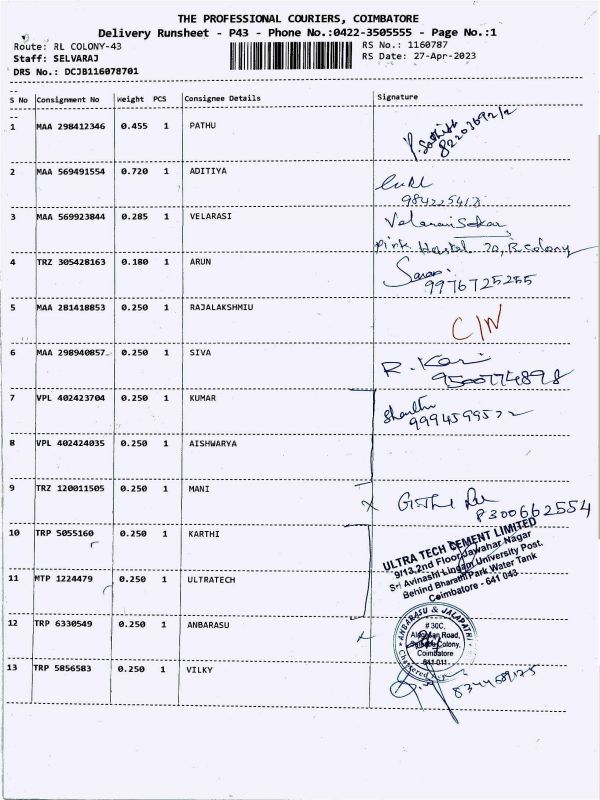 THE PROFESSIONAL COURIERS, COIMBATORE
Delivery Runsheet - P43 - Phone No.:0422-3505555 - Page No.:1
Route: RL COLONY-43 RS No.: 1160787
Staff: SELVARAJ RS Date: 27-Apr-2023
DRS No.: DCJB116078701
S No Consignment No Weight PCS Consignee Details Signature
1 MAA 298412346 0.455 1 PATHU
2 MAA 569491554 0.720 1 ADITIYA
3 MAA 569923844 0.285 1 VELARASI
Pink Hostel 70, R. Colony
4 TRZ 305428163 0.180 1 ARUN
9976725255
5 MAA 281418853 0.250 1 RAJALAKSHMIU C/N
6 MAA 298940857 0.250 1 SIVA R. Kani
9500774898
7 VPL 402423704 0.250 1 KUMAR
8 VPL 402424035 0.250 1 AISHWARYA
9 TRZ 120011505 0.250 1 MANI
10 TRP 5055160 0.250 1 KARTHI
ULTRA TECH CEMENT LIMITED
9/13,2nd Floor,Jawahar Nagar
Sri Avinashi Lingam University Post.
Behind Bharathi Park Water Tank
Coimbatore - 641 043
11 MTP 1224479 0.250 1 ULTRATECH
12 TRP 6330549 0.250 1 ANBARASU
ANBARASU & JALAPATHI
# 30C,
Road,
Colony,
Coimbatore
641 011
Chartered
13 TRP 5856583 0.250 1 VILKY